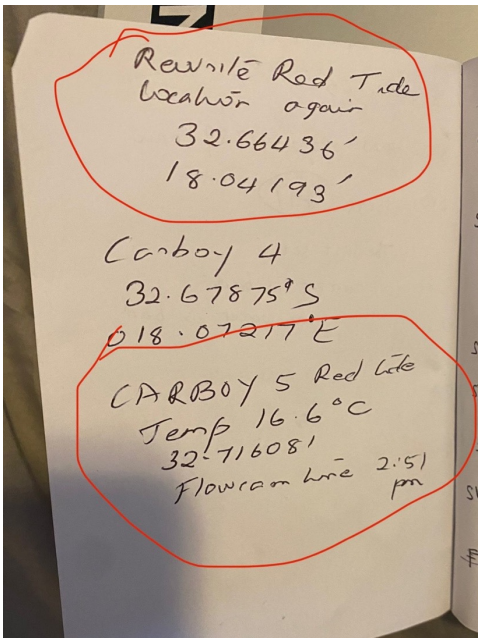 Rewrite Red Tide
Location again
32.66436'
18.04193'
Carboy 4
32.67875° S
018.07217° E
CARBOY 5 Red tide
Temp 16.6°C
32.716081
Flowcam time 2:51
pm